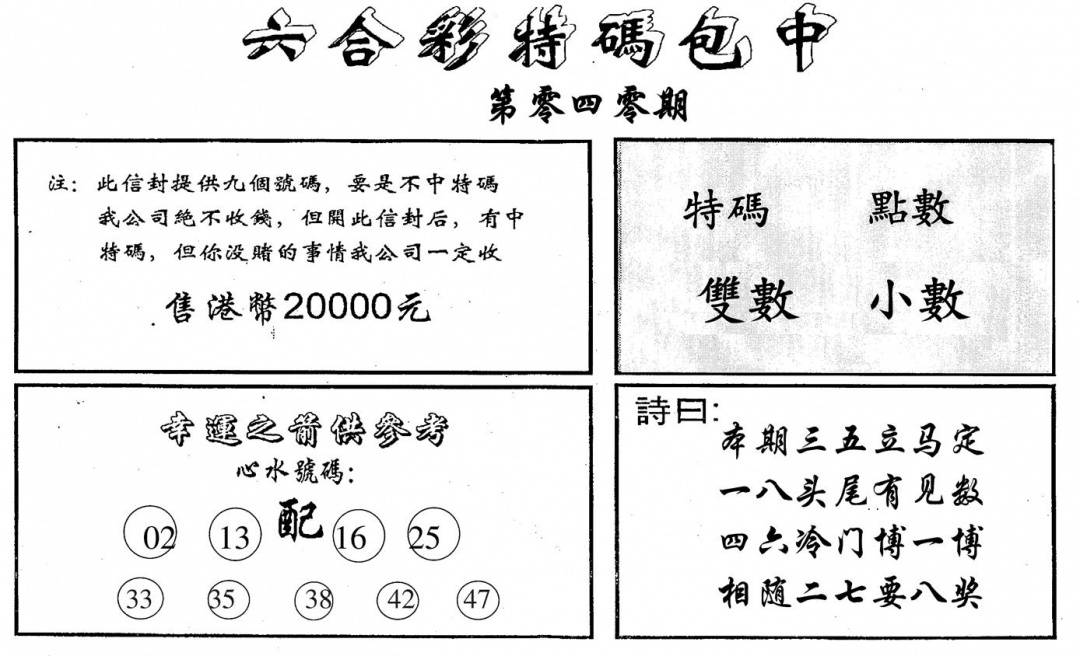 六合彩特碼包中
第零四零期
注：此信封提供九個號碼，要是不中特碼
我公司絕不收錢，但開此信封后，有中
特碼，但你没賭的事情我公司一定收
售港幣20000元
特碼 點數
雙數 小數
幸運之箭供參考
心水號碼：
配
02 13 16 25
33 35 38 42 47
詩曰：
本期三五立马定
一八头尾有见数
四六冷门博一博
相随二七要八奖